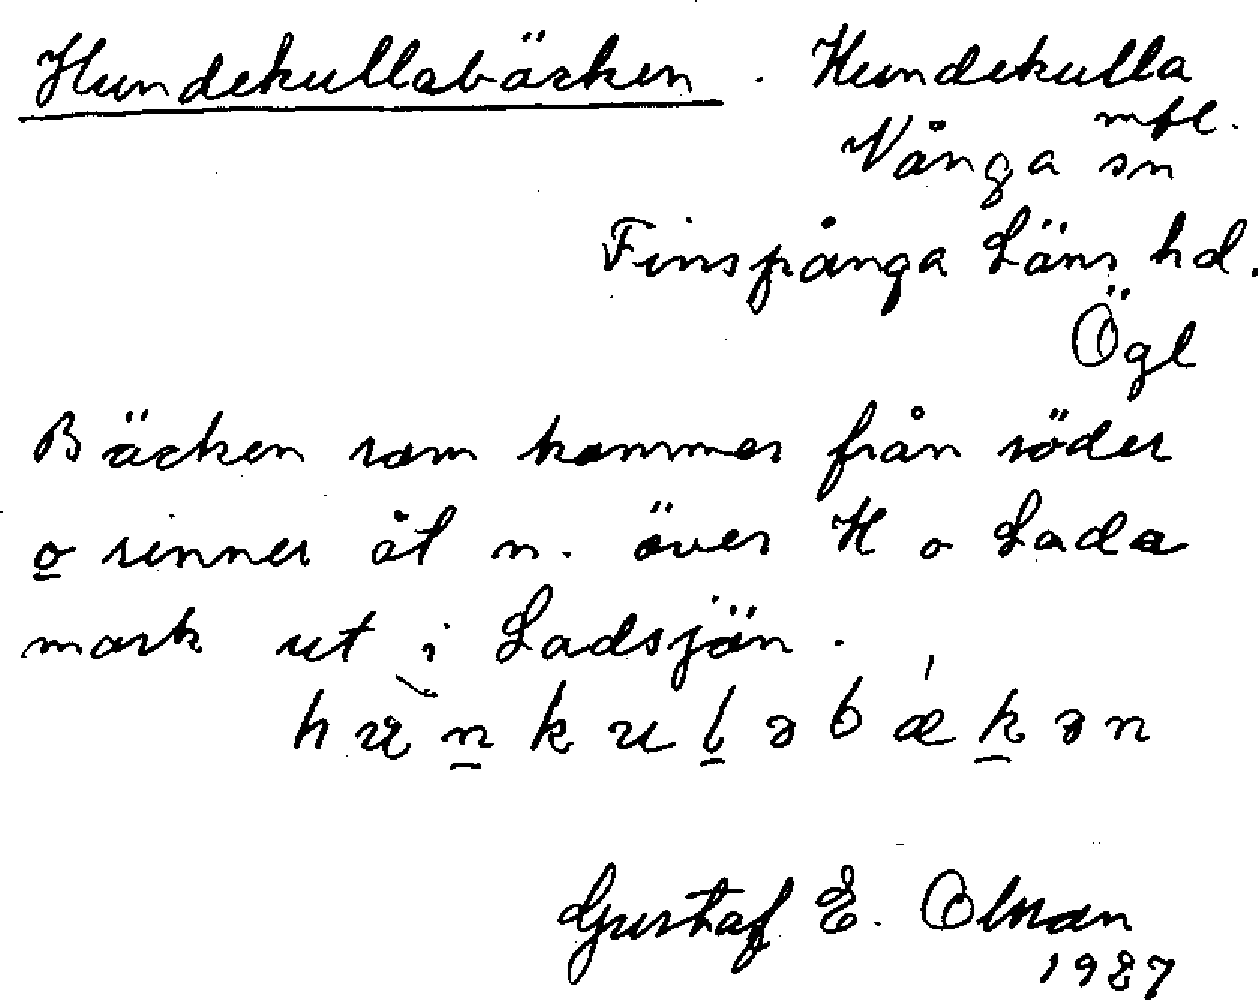 Hundekullabäcken . Hundekulla
mfl.
Vånga sn
Finspånga Läns hd.
Ögl
Bäcken som kommer från söder
o rinner åt n. över H o Lada
mark ut i Ladsjön .
Gustaf E.
1927